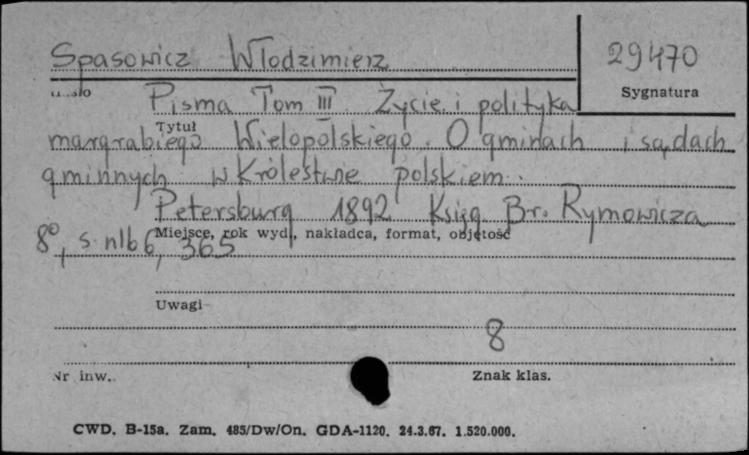 Spasowicz Włodzimierz 29470
Hasło Sygnatura
Pisma Tom III Życie i polityka
Tytuł
margrabiego Wielopolskiego. O gminach i sądach
gminnych w Królestwie polskiem.
Petersburg 1892 Księg. Br. Rymowicza
Miejsce, rok wyd., nakładca, format, objętość
8°, s. nlb 6, 365
Uwagi
8
Nr inw. Znak klas.
CWD. B-15a. Zam. 485/Dw/On. GDA-1120. 24.3.67. 1.520.000.